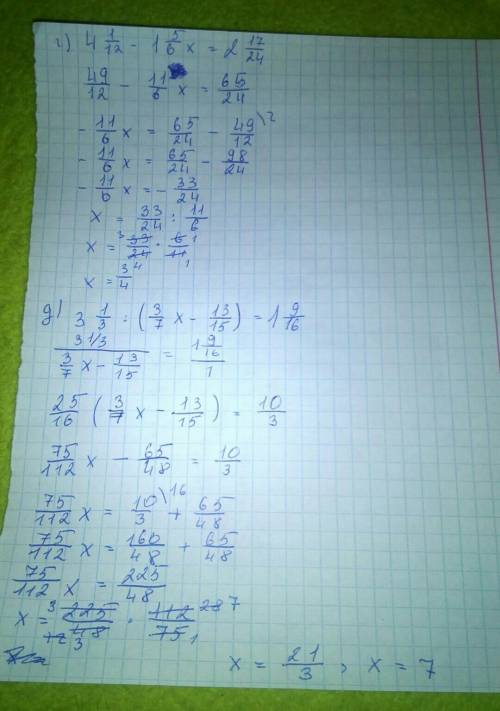 г) 4 1/12 - 1 5/6 x = 2 17/24
49/12 - 11/6 x = 65/24
- 11/6 x = 65/24 - 49/12 \2
- 11/6 x = 65/24 - 98/24
- 11/6 x = - 33/24
x = 33/24 : 11/6
x = 3 33/24 4 · 6/11 1 1
x = 3/4
д) 3 1/3 : (3/7 x - 13/15) = 1 9/16
3 1/3 / (3/7 x - 13/15) = 1 9/16 / 1
25/16 (3/7 x - 13/15) = 10/3
75/112 x - 65/48 = 10/3
75/112 x = 10/3 \16 + 65/48
75/112 x = 160/48 + 65/48
75/112 x = 225/48
x = 3 225/48 12 3 · 112/75 28 7 1
x = 21/3 , x = 7